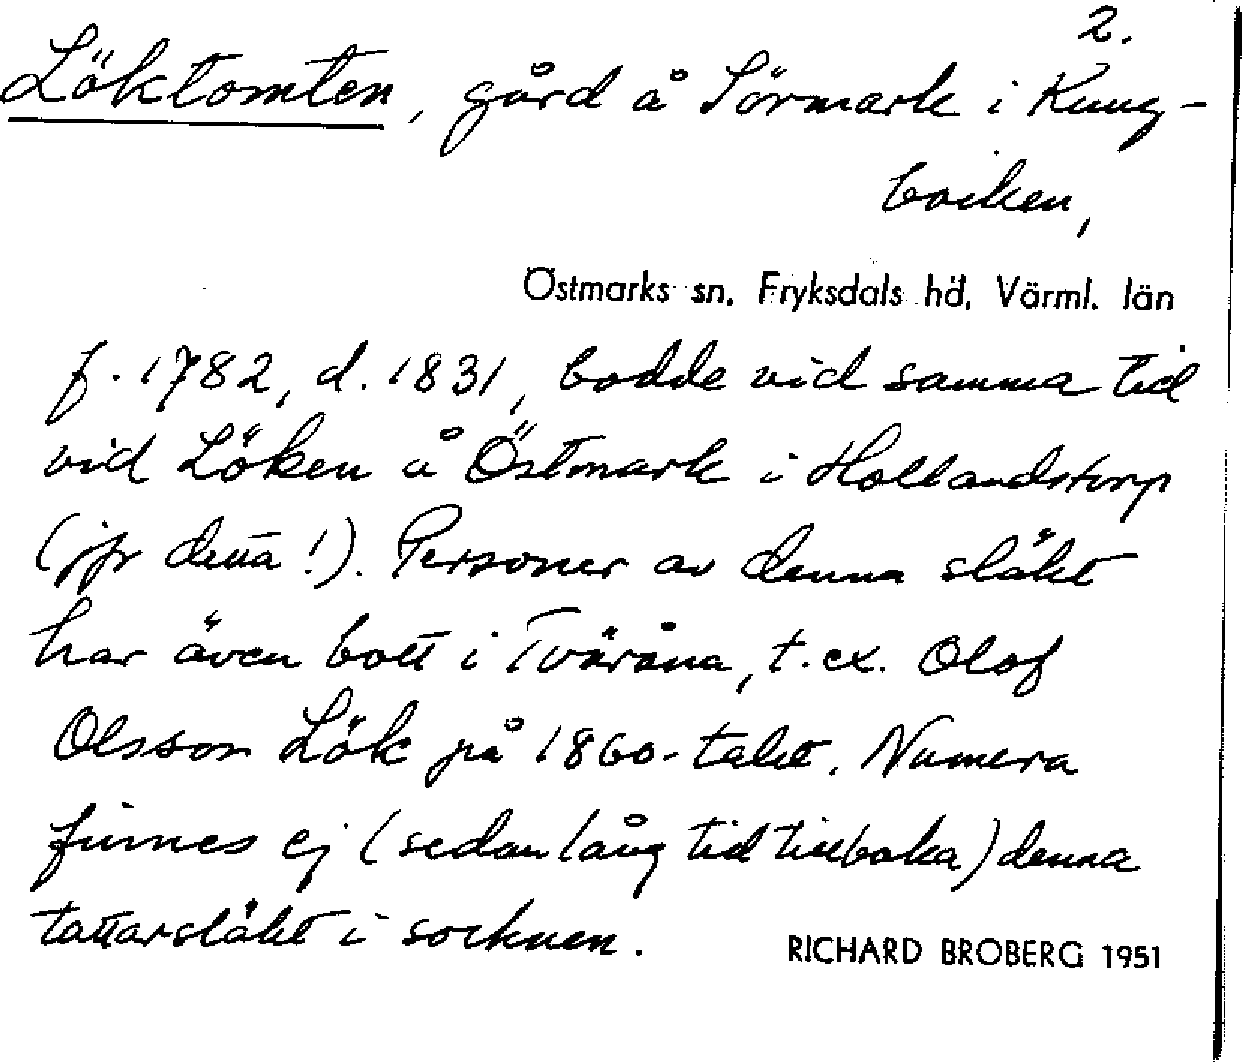 2.
Löktomten, gård å Sörmark i Kung-
backen,
Östmarks sn. Fryksdals hd. Värml. län
f. 1782, d. 1831, bodde vid samma tid
vid Löken å Östmark i Hollandstorp
(jfr detta!). Personer av denna släkt
har även bott i Tväråna, t.ex. Olof
Olsson Lök på 1860-talet. Numera
finnes ej (sedan lång tid tillbaka) denna
tattarsläkt i socknen.
RICHARD BROBERG 1951